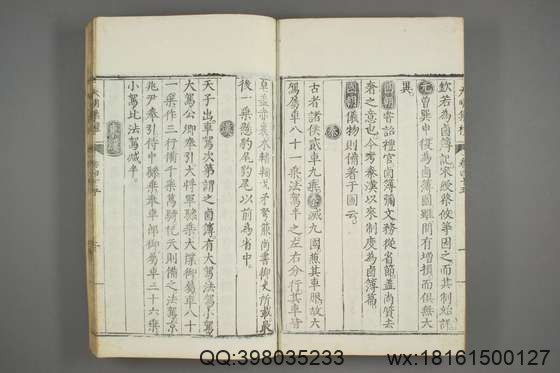 欽若為鹵簿記宋綬蔡攸等因之而其制始詳
元曾巽申復為鹵簿圖雖間有增損而俱無大
異
國朝寄詔禮官鹵簿彌文務從省節蓋尚質去
奢之意也今考秦漢以來制度為鹵簿篇
國朝儀物則備著于圖云
秦
古者諸侯貳車九乘秦滅九國兼其車服故大
駕屬車八十一乘法駕半之左右分行其車皆
皁蓋赤裏木轓戈矛弩箙尚書御史所載最
後一乘懸豹尾豹尾以前為省中
漢
天子出車駕次第謂之鹵簿有大駕法駕小駕
大駕公卿奉引大將軍驂乘太僕御屬車八十
一乘作三行備千乘萬騎祀天則備之法駕京
兆尹奉引侍中驂乘奉車郎御屬車三十六乘
小駕比法駕減半
東漢
QQ:398035233 wx:18161500127